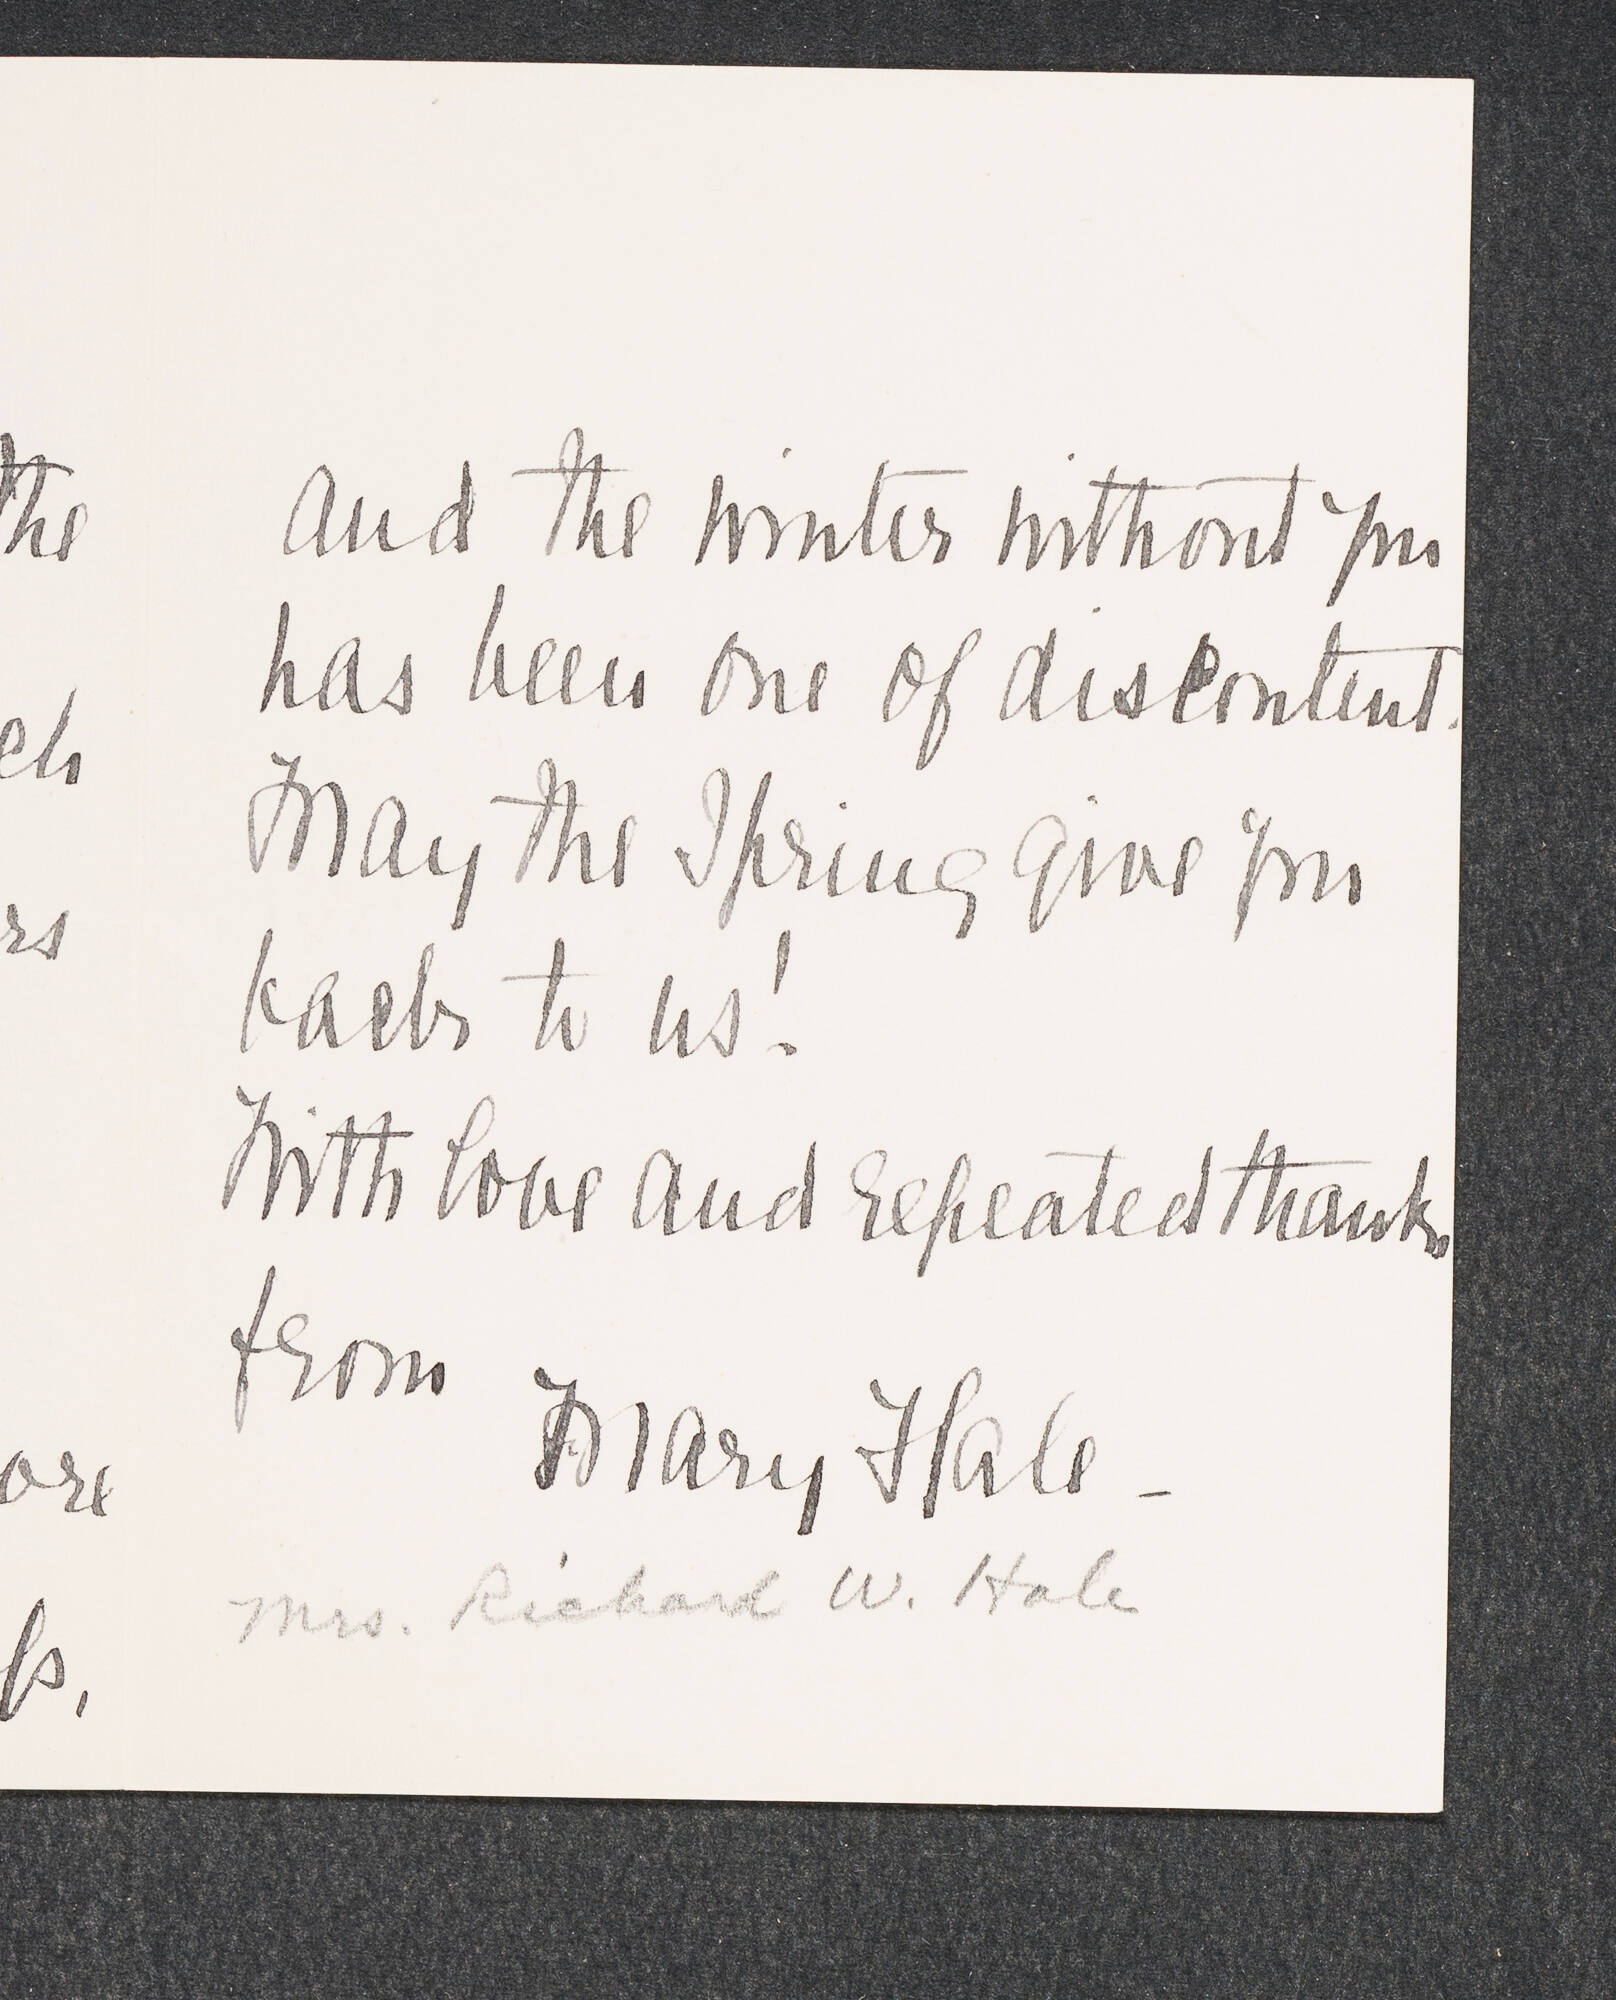 the
and the winter without you
has been one of discontent.
ch
May the Spring give you
rs
back to us!
With love and repeated thanks
from
ore
Mary Hale -
Mrs. Richard W. Hale